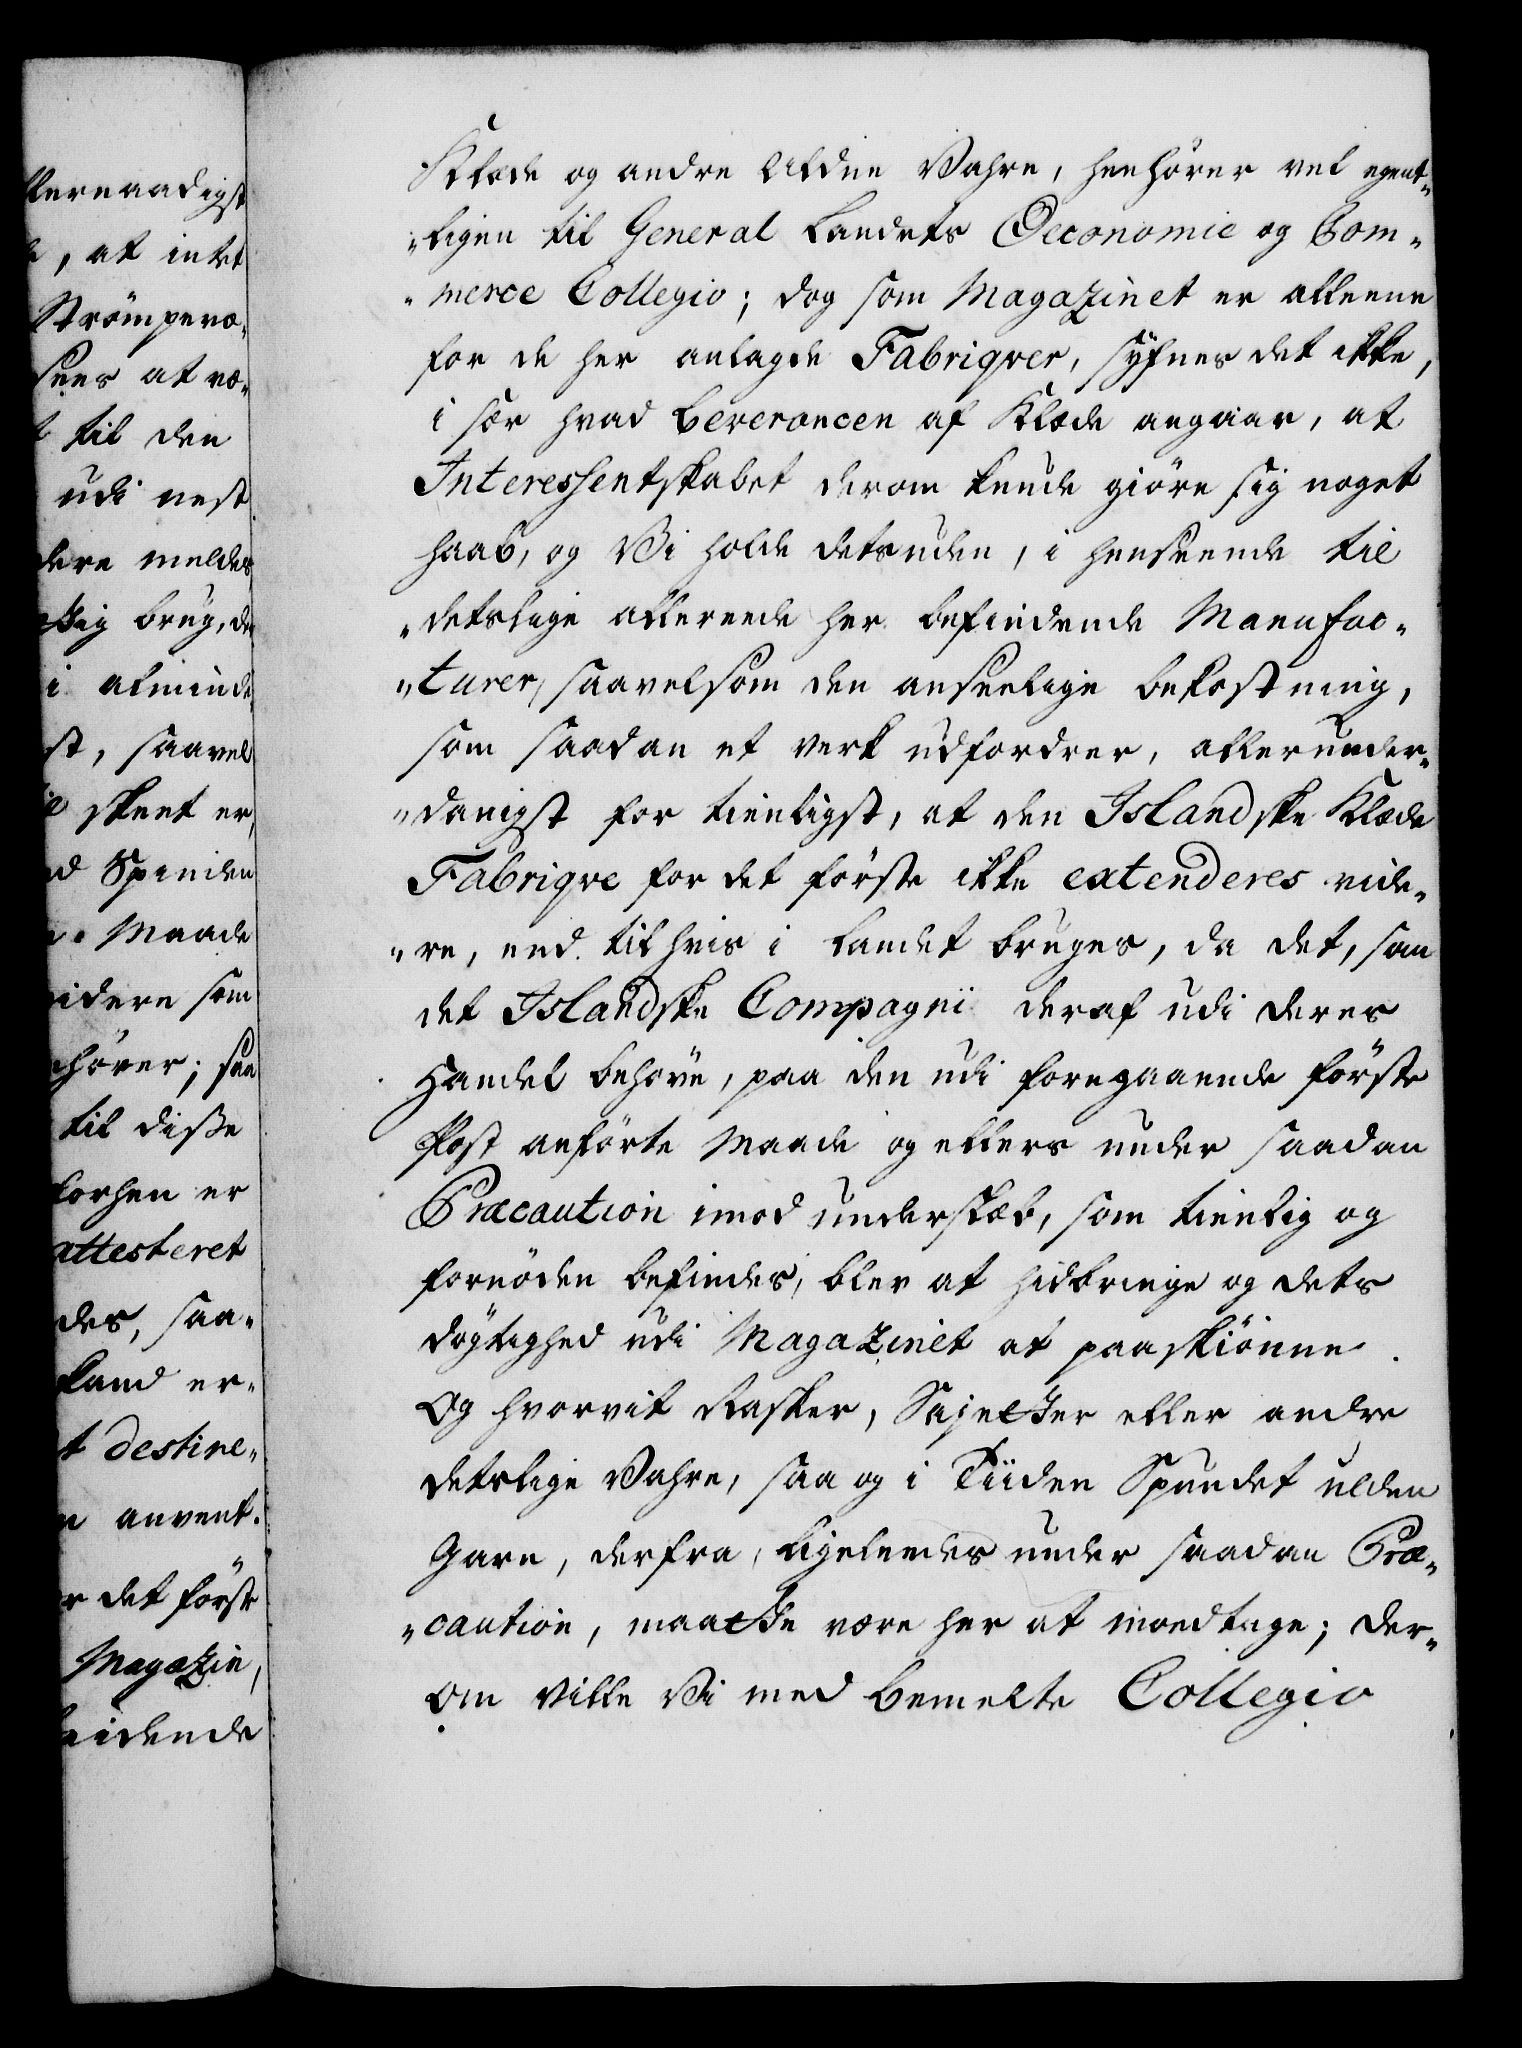 llernaadigst
, at intet
Strömpevæ-
sees at væ-
til den
udi nest
dere meldes
tig brug, de
i almind
st, saavel
skeet er,
d Spinden
Maade
videre som
hører; saa
til diſse
forhen er
attesteret
des, saa-
kand er-
t destine-
n anvent.
r det förste
Magazin,
eidende
Klæde og andre Uldne Vahre, henhører vel egent-
ligen til General Landets Oeconomie og Com-
merce Collegio; dog som Magazinet er alleene
for de her anlagde Fabriqver, syfnes det ikke,
i sær hvad Leverancen af Klæde angaar, at
Interessentskabet derom kunde giöre sig noget
haab, og Vi holde detsuden, i henseende til
detslige allereede her befindende Manufac-
turer, saavelsom den anseelige bekostning,
som saadan et verk udfordrer, allerunder-
danigst for tienligst, at den Islandske Klæde
Fabriqve for det förste ikke extenderes vide-
re, end til hvis i Landet bruges, da det, som
det Islandske Compagni deraf udi deres
Handel behöve, paa den udi foregaaende förste
Post anförte Maade og ellers under saadan
Præcaution imod underslæb, som tienlig og
fornöden befindes, blev at hidbringe og dets
dögtighed udi Magazinet at paaskiönne.
Og hvorvit Rasker, Sajetter eller andre
detslige Vahre, saa og i Tiiden Spundet ulden
Garn, derfra, ligeledes under saadan Præ-
caution, maatte være her at imodtage; der-
om Ville Vi med bemelte Collegio